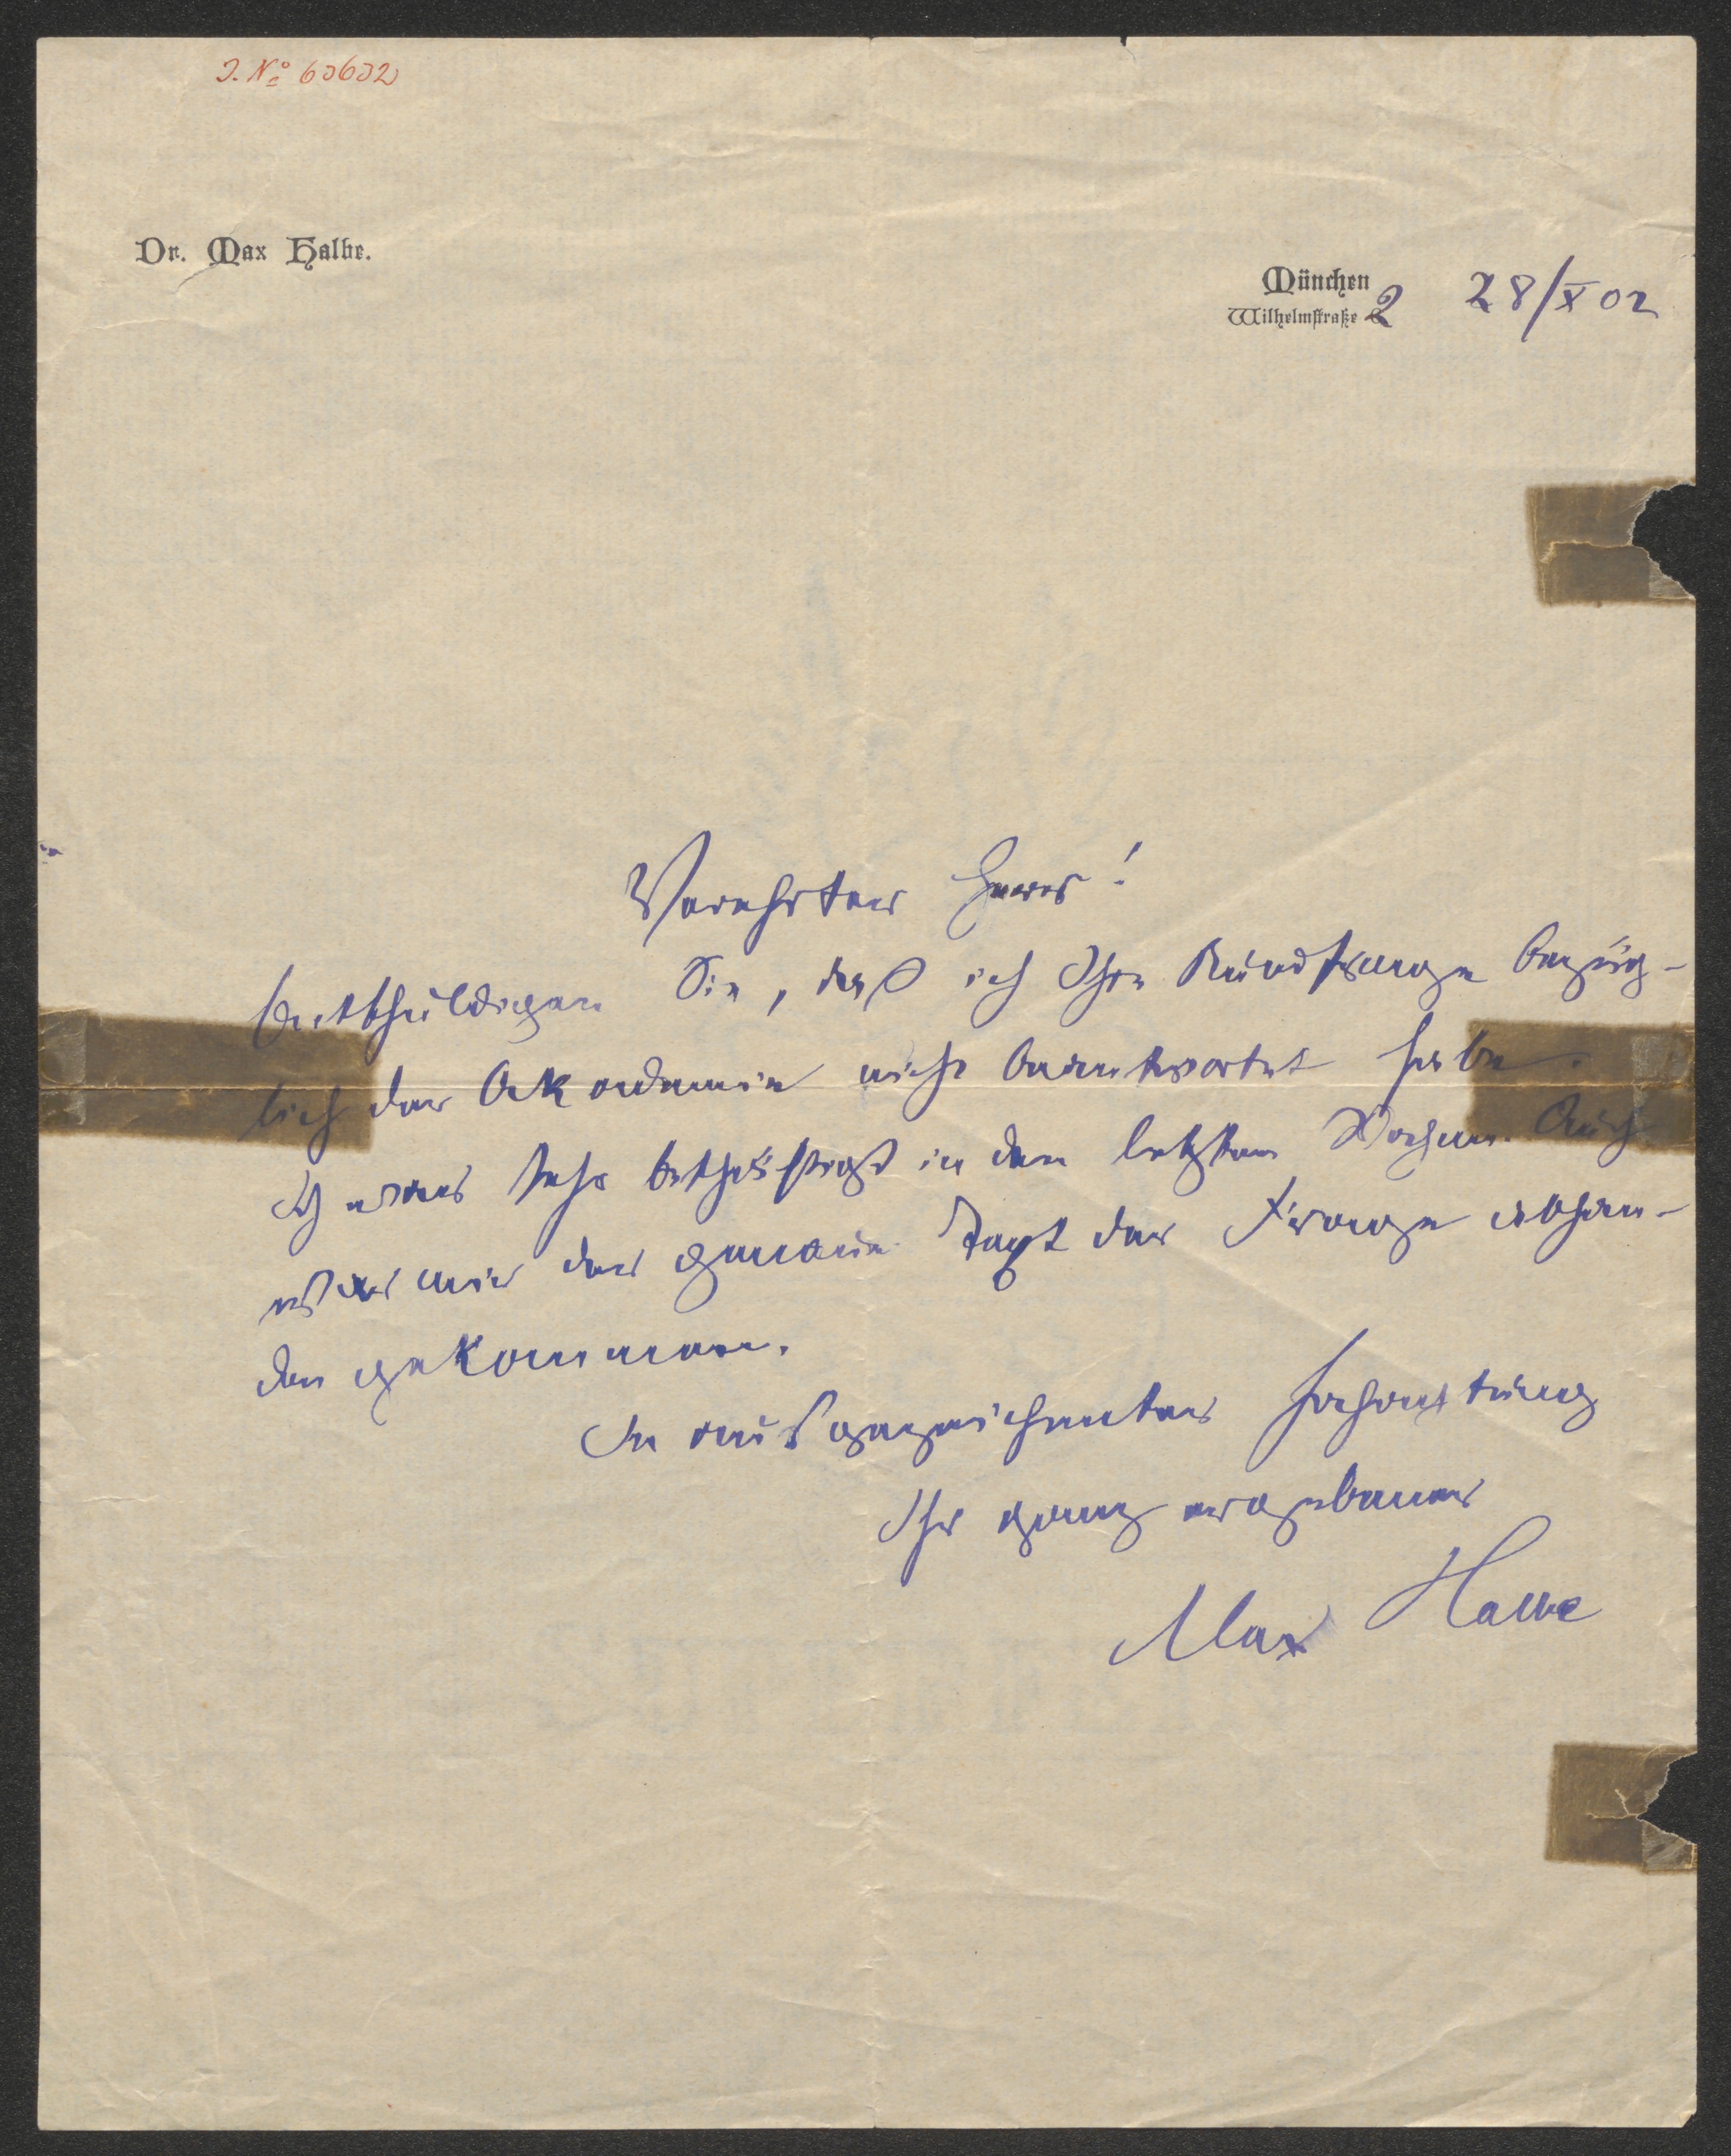 J. No 60602
Dr. Max Halbe.
München
Wilhelmstraße 2
28/X 02
Verehrter Herr!
Entschuldigen Sie, daß ich Ihre Rundfrage bezüg-
lich der Akademie nicht beantwortet habe.
Ich war sehr beschäftigt in den letzten Wochen. Auch
war mir der genaue Text der Frage abhan-
den gekommen.
In ausgezeichneter Hochachtung
Ihr ganz ergebener
Max Halbe